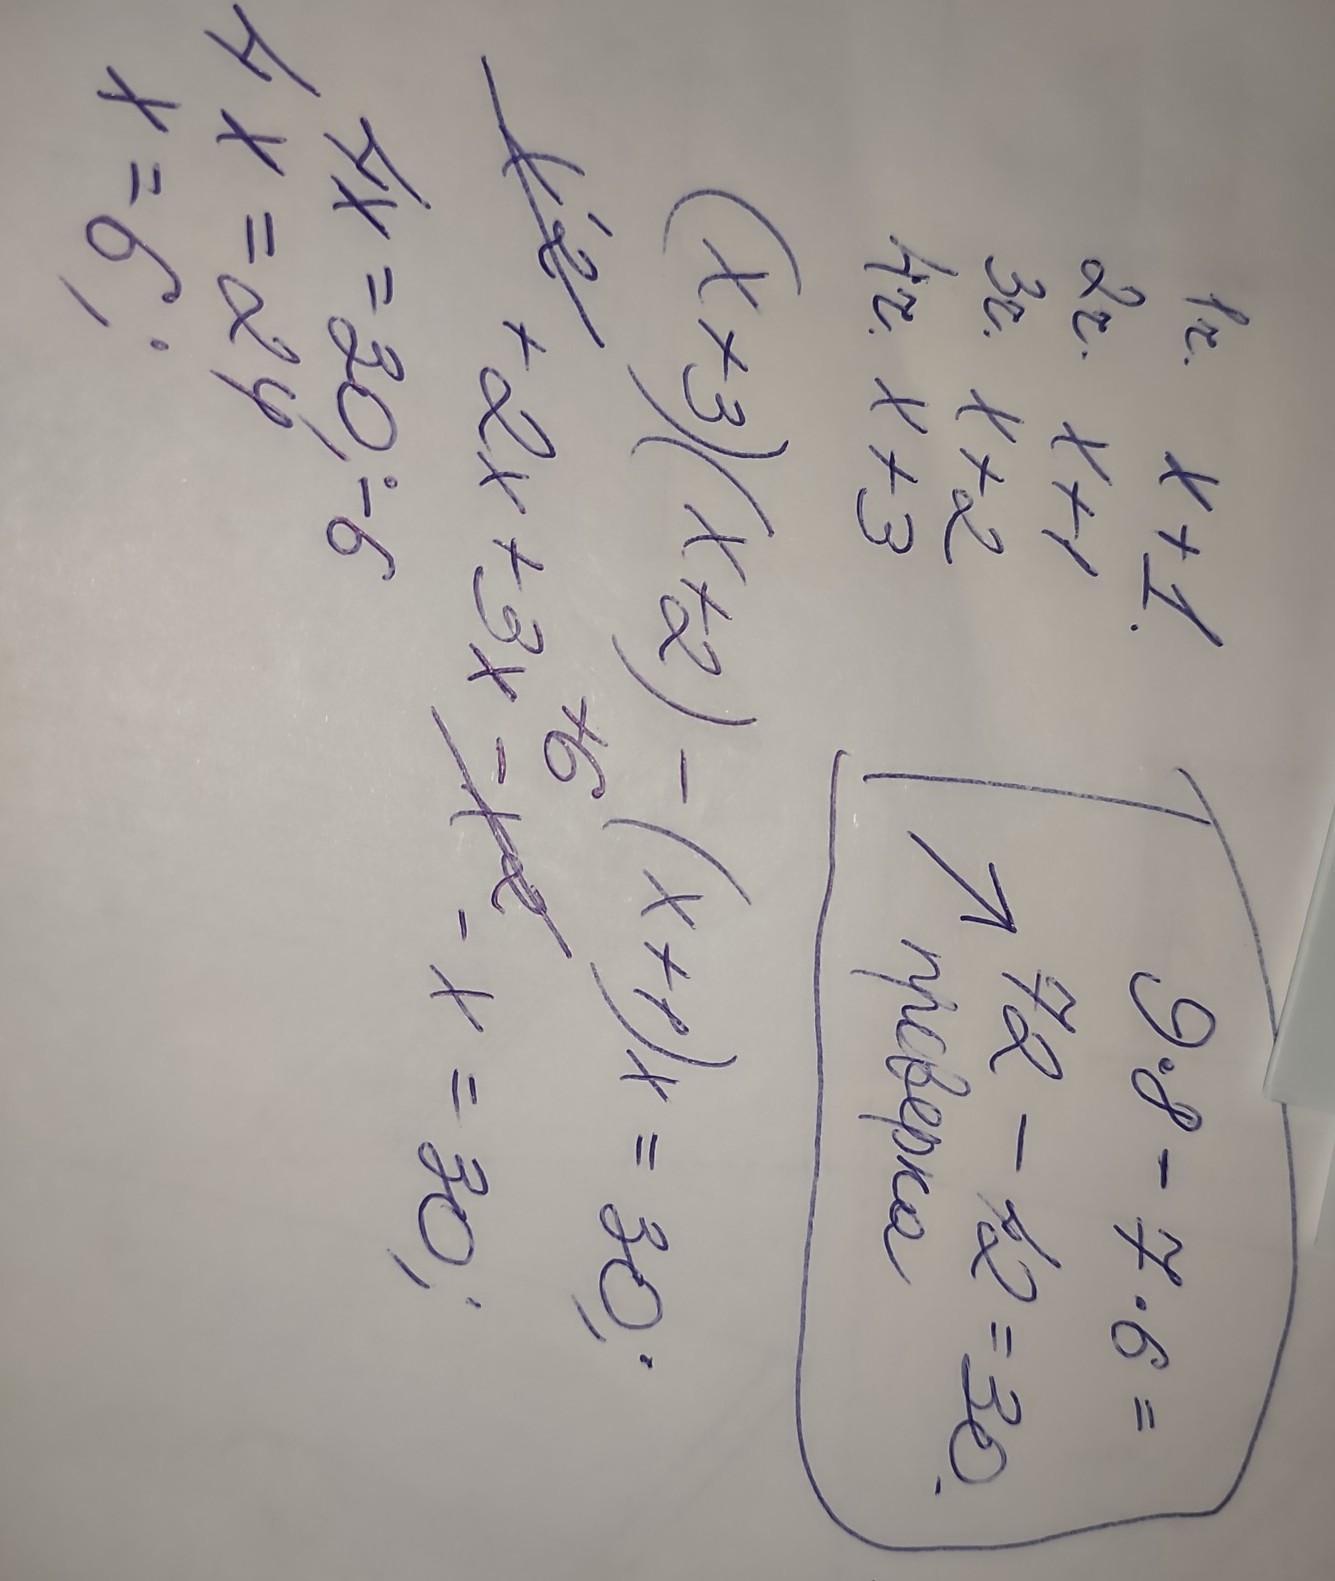 1ч. x+1.
2ч. x+1
3ч. x+2
4ч. x+3
9·8-7·6=
72-42=30.
↗ проверка
(x+3)(x+2)-(x+1)x=30;
x²+2x+3x+6-x²-x=30;
4x=30-6
4x=24
x=6;